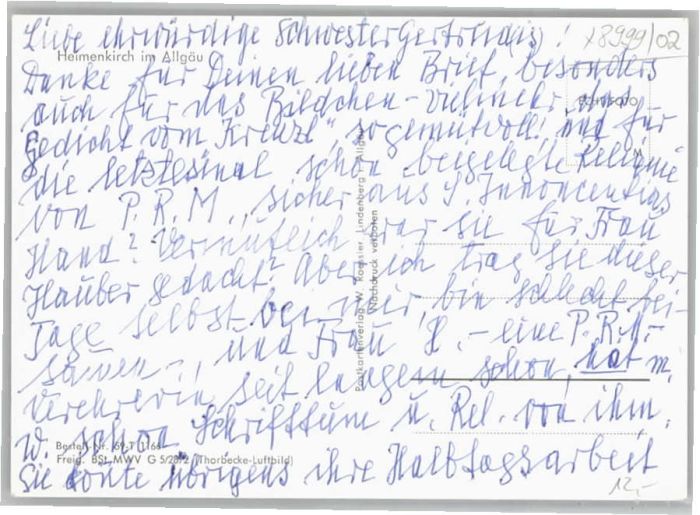 Liebe ehrwürdige Schwester Gertrud(is)!
x8999/02
Heimenkirch im Allgäu
Danke für Deinen lieben Brief, besonders
auch für das Bildchen - vielmehr „das
Gedicht vom Kreuz" so gemütvoll! und für
die letztesmal schon beigelegte Reliquie
von P. R. M., sicher aus S. Innocentias
Hand? Vermutlich war sie für Frau
Hauber gedacht? Aber ich trag sie dieser
Tage selbst bei mir, bin schlecht bei-
sammen -, und Frau H. - eine P. R. M.-
Verehrerin seit langem schon, hat m.
W. schon Schrifttum u. Rel. von ihm.
Sie übrigens ihre Halbtagsarbeit
Postkartenverlag W. Lindenberg i. Allgäu
Nachdruck verboten
Bestell-Nr.
Freig. BSt. MWV G 5/28/2 (Thorbecke-Luftbild)
12,-